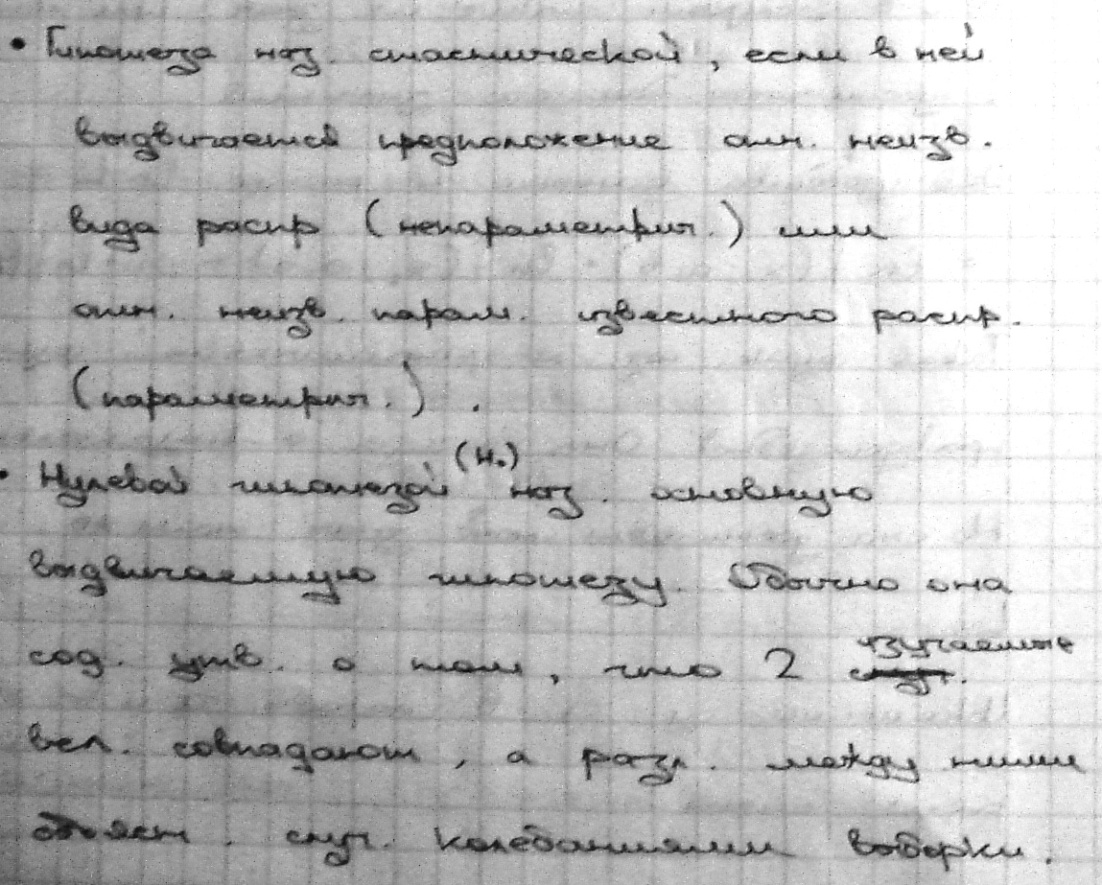 • Гипотеза наз. стастической, если в ней
выдвигается предположение отн. неизв.
вида распр (непараметрич.) или
отн. неизв. парам. известного распр.
(параметрич.).
• Нулевой гипотезой (H₀) наз. основную
выдвигаемую гипотезу. Обычно она
сод. утв. о том, что 2 изучаемые
вел. совпадают, а разл. между ними
объясн. случ. колебаниями выборки.